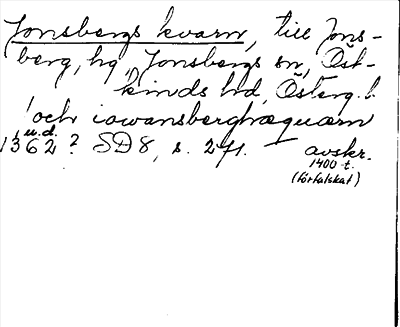 Jonsbergs kvarn, till Jons-
berg, hg, Jonsbergs sn, Öst-
kinds hd, Österg. l.
och iowansberghæquærn
u.d.
1362? SD 8, s. 2 f. avskr.
1400-t.
(förfalskat)